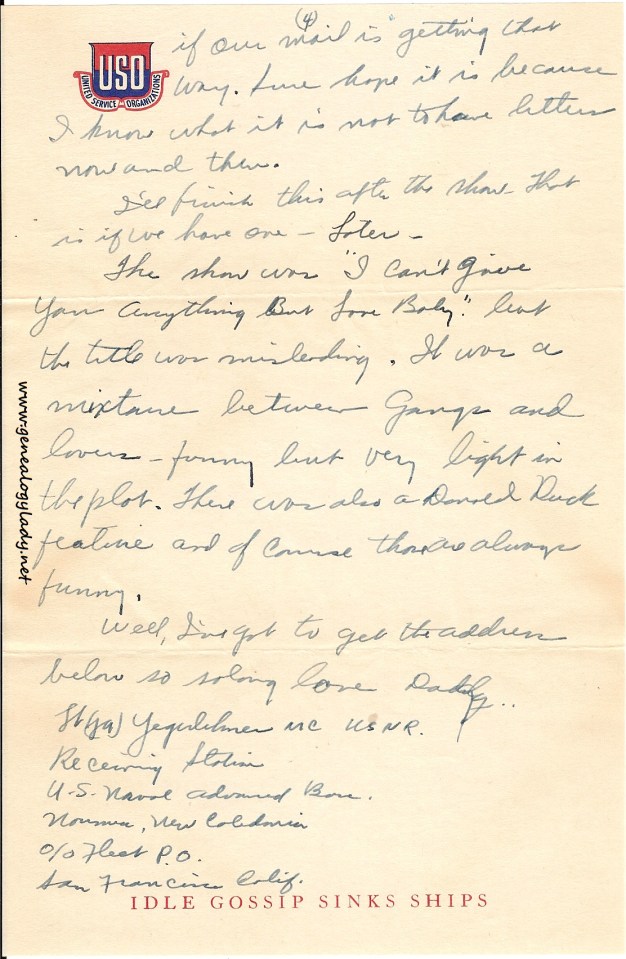 (4)
if our mail is getting that
USO
UNITED SERVICE ORGANIZATIONS
way. Sure hope it is because
I know what it is not to have letters
now and then.
I'll finish this after the show - that
is if we have one - Later -
The show was "I Can't Give
You Anything But Love Baby." but
the title was misleading. It was a
mixture between Gangs and
lovers - funny but very light in
the plot. There was also a Donald Duck
feature and of course those are always
funny.
Well, I've got to get the address
below so solong love Daddy..
Lt(jg) Yegerlehner MC USNR.
Receiving Station
U.S. Naval Advanced Base.
Noumea, New Caledonia
c/o Fleet P.O.
San Francisco Calif.
IDLE GOSSIP SINKS SHIPS
www.genealogylady.net